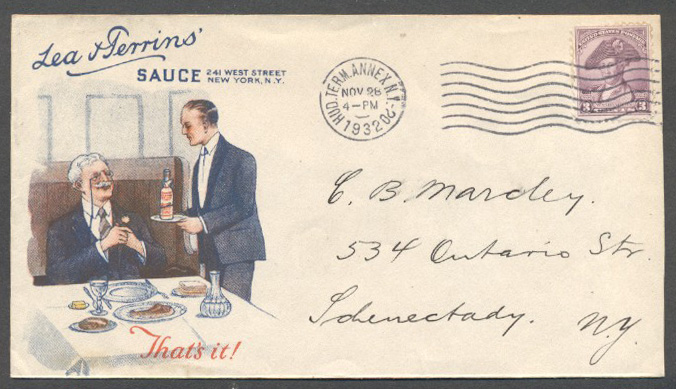 Lea & Perrins'
SAUCE 241 WEST STREET
NEW YORK, N.Y.
HUD. TERM. ANNEX. N.Y.
NOV 26
4-PM
1932
3 3
C. B. Mardey.
534 Ontario Str.
Schenectady. N.Y.
That's it!